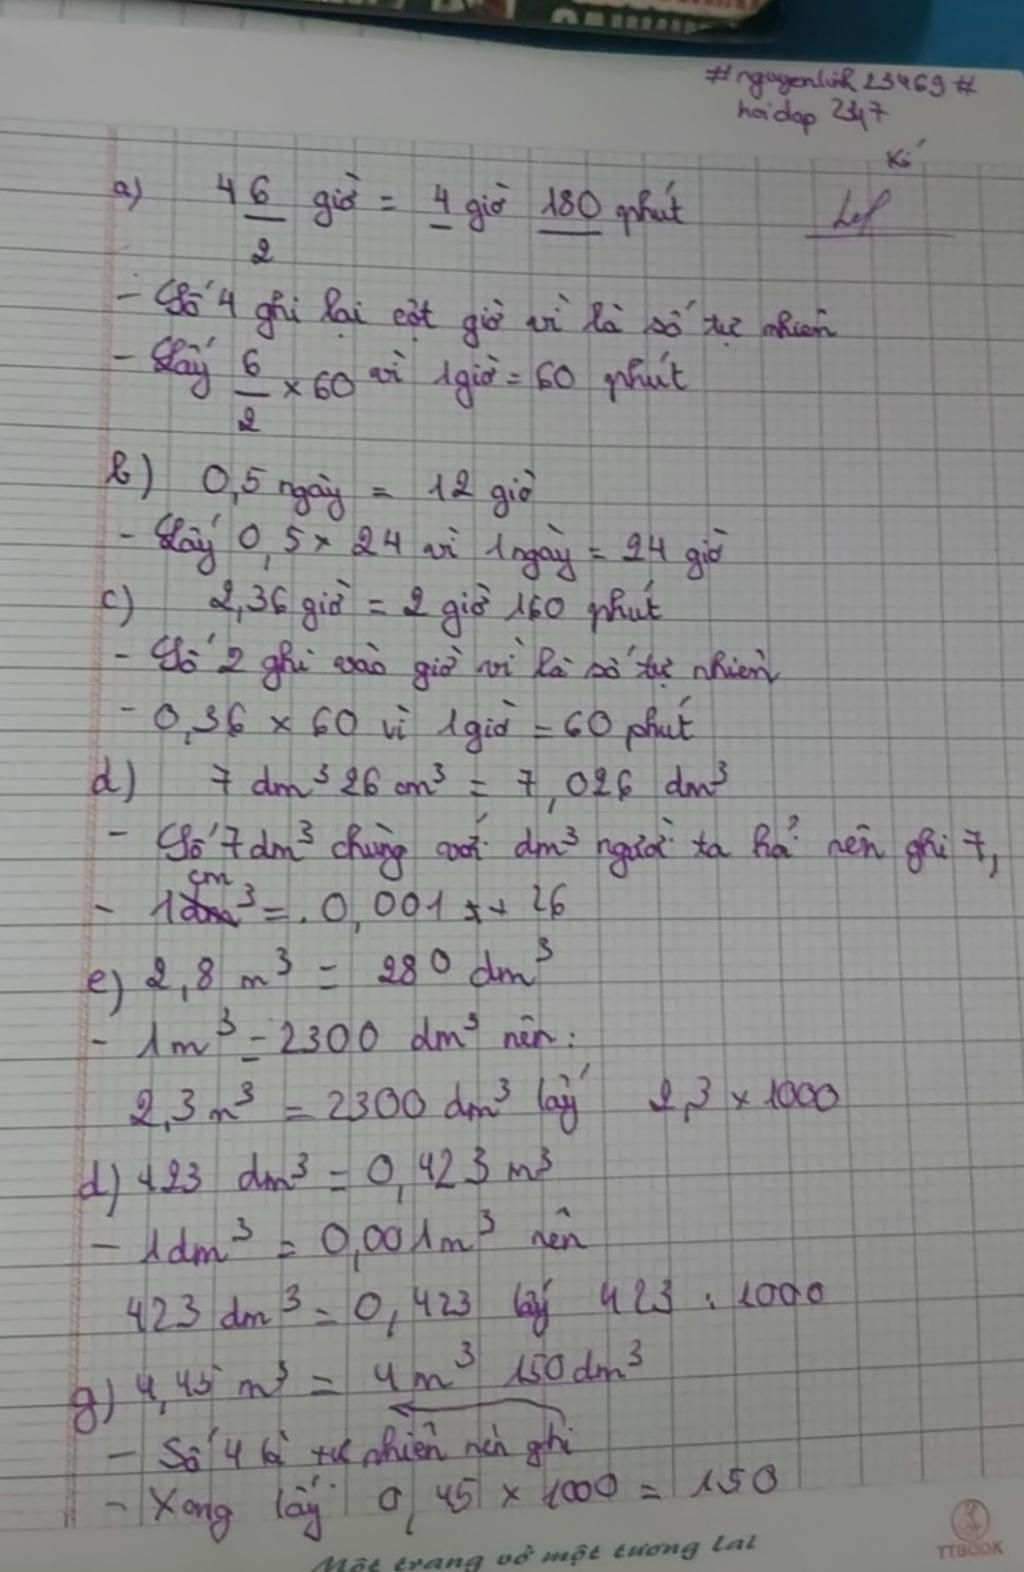 #nguyenlinh23469#
hoidap 247
Kí
a) 4 6/2 giờ = 4 giờ 180 phút
- Số 4 ghi lại cột giờ vì là số tự nhiên
- Lấy 6/2 x 60 vì 1 giờ = 60 phút
b) 0,5 ngày = 12 giờ
- Lấy 0,5 x 24 vì 1 ngày = 24 giờ
c) 2,36 giờ = 2 giờ 160 phút
- Số 2 ghi vào giờ vì là số tự nhiên
- 0,36 x 60 vì 1 giờ = 60 phút
d) 7 dm³ 26 cm³ = 7,026 dm³
- Số 7 dm³ chùng với dm³ người ta hả nên ghi 7,
- 1 cm³ = 0,001 x 26
e) 2,8 m³ = 280 dm³
- 1m³ = 2300 dm³ nên:
2,3 m³ = 2300 dm³ lấy 2,3 x 1000
d) 423 dm³ = 0,423 m³
- 1dm³ = 0,001m³ nên
423 dm³ = 0,423 lấy 423 : 1000
g) 4,45 m³ = 4m³ 150 dm³
- Số 4 là tự nhiên nên ghi
- Xong lấy 0,45 x 1000 = 150
Một trang vở một tương lai
TTBOOK